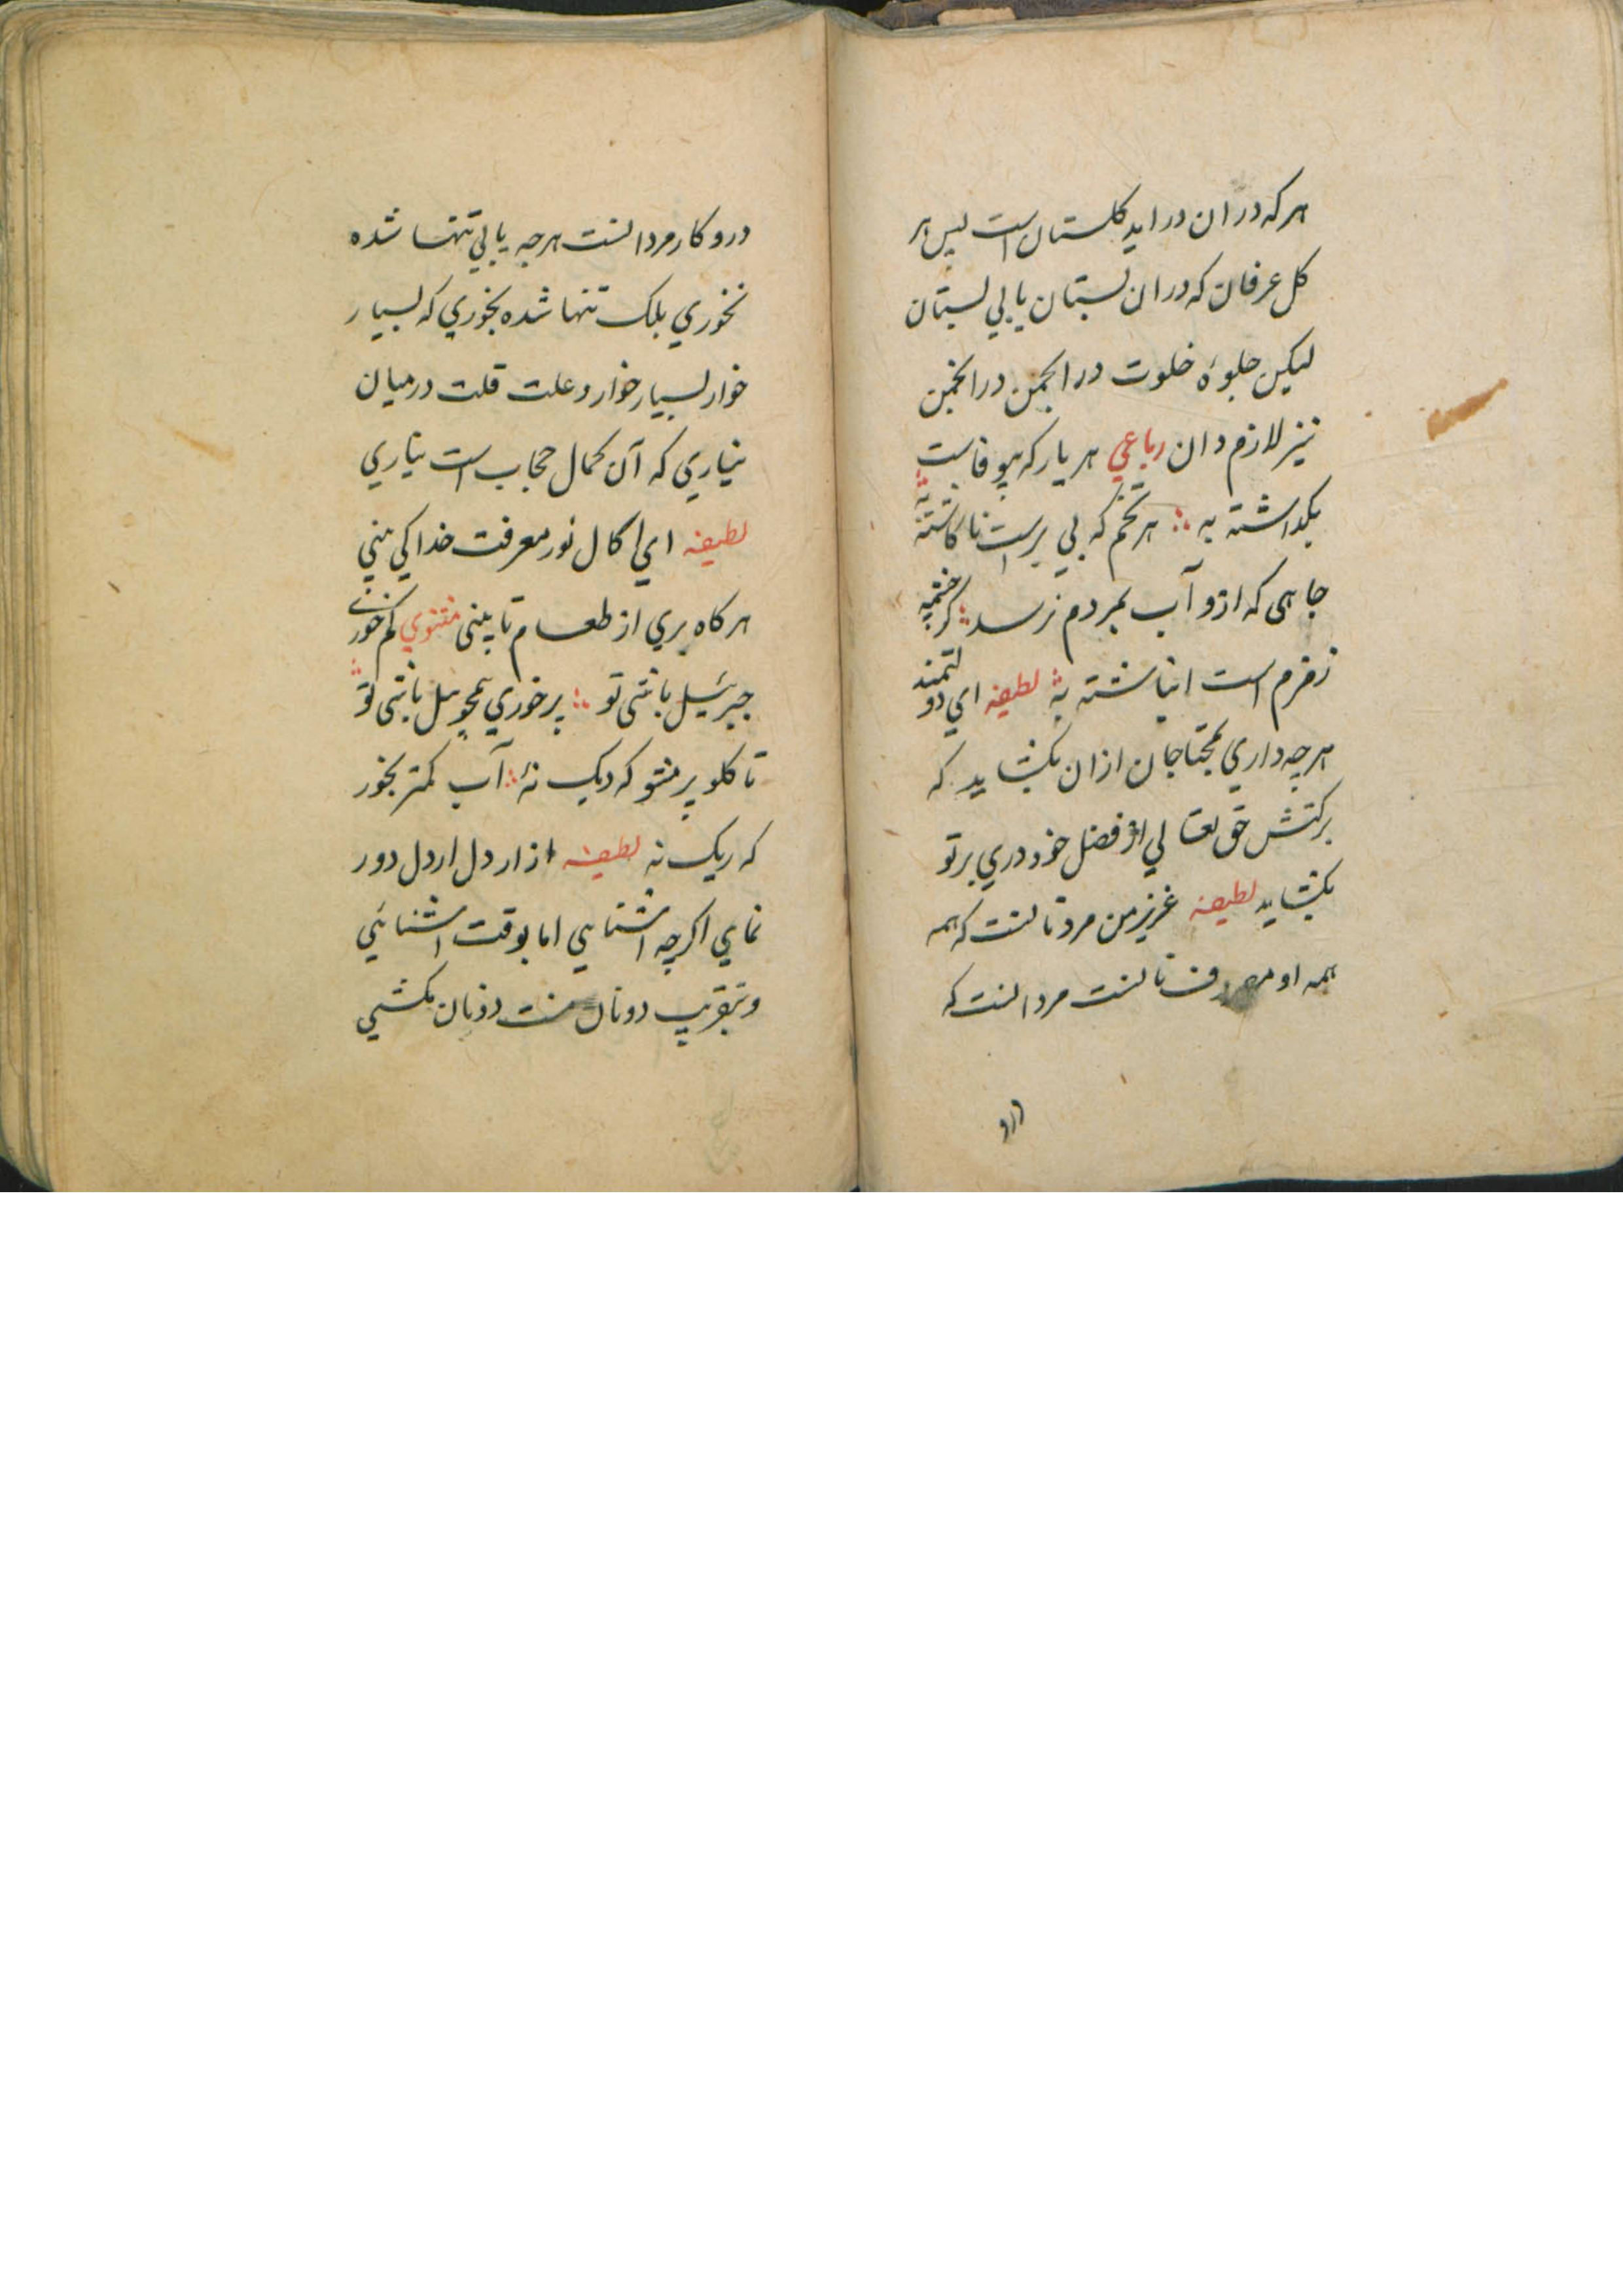 هر که در ان در اید کلستان است پس هر
کل عرفان که در ان بستان یابی بستان
لیکن جلوهٔ خلوت در انجمن در انجمن
نیز لازم دان رباعي هر یار که بیوفاست
بکداشته به هر تخم که بی برست ناکاشته به
جاهی که ازو آب بمردم نرسد کر چشمه
زمزم است انباشته به لطیفه اي دولتمند
هر چه داري بمحتاجان ازان بکشاید که
برکتش حق تعالي از فضل خود دري بر تو
بکشاید لطیفه عزیز من مرد نانست که همه
همه او مصرف نانست مرد انست که
درو کار مردانست هر چه یابي تنها شده
نخوري بلک تنها شده بخوري که بسیار
خوار بسیار خوار و علت قلت درمیان
نیاري که آن کمال حجاب است نیاري
لطیفه اي اکال نور معرفت خدا کی بینی
هر کاه بري از طعام تا بینی مثنوي کم خوری
جبرئیل باشی تو پر خوري همچو پیل باشی تو
تا کلو پر مشو که دیک نهٔ آب کمتر بخور
که ریک نه لطیفه از اردل اردل دور
نماي اکرچه اشنایي اما بوقت اشنائي
و بتقریب دونان منت دونان نکشي